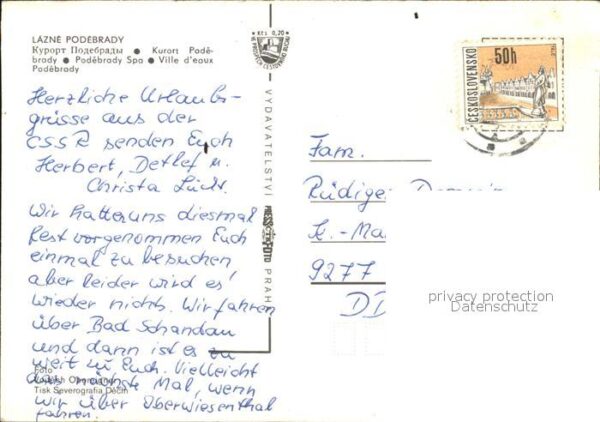 LÁZNĚ PODĚBRADY
Курорт Подебрады ● Kurort Poděbrady
● Poděbrady Spa ● Ville d'eaux
Poděbrady
Herzliche Urlaubs-
grüsse aus der
CSSR senden Euch
Herbert, Detlef u.
Christa
Wir hatten uns diesmal
fest vorgenommen Euch
einmal zu besuchen
aber leider wird es
wieder nichts. Wir fahren
über Bad Schandau
und dann ist es zu
weit zu Euch. Vielleicht
das nächste Mal, wenn
wir über Oberwiesenthal
fahren.
Foto
Tisk Severografia Děčín
Kčs 0,20
VYDAVATELSTVÍ
PRESSFOTO
PRAHA
50h
ČESKOSLOVENSKO
Fam.
Rüdiger
K.-Ma
9277
DD
privacy protection
Datenschutz